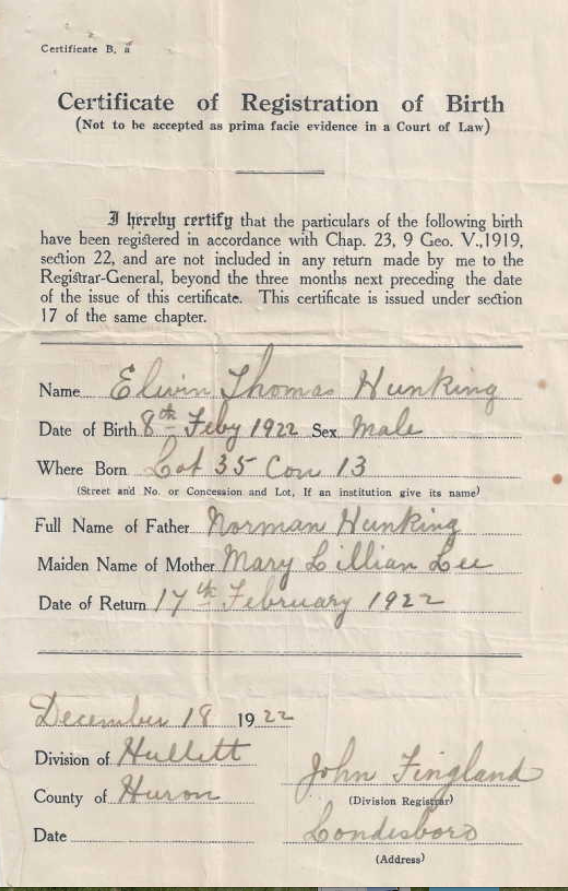 Certificate B. a
Certificate of Registration of Birth
(Not to be accepted as prima facie evidence in a Court of Law)
I hereby certify that the particulars of the following birth
have been registered in accordance with Chap. 23, 9 Geo. V.,1919,
section 22, and are not included in any return made by me to the
Registrar-General, beyond the three months next preceding the date
of the issue of this certificate. This certificate is issued under section
17 of the same chapter.
Name Elwin Thomas Hunking
Date of Birth 8th Feby 1922 Sex Male
Where Born Lot 35 Con 13
(Street and No. or Concession and Lot, If an institution give its name)
Full Name of Father Norman Hunking
Maiden Name of Mother Mary Lillian Lee
Date of Return 17th February 1922
December 18 1922
Division of Hullett
John Fingland
County of Huron
(Division Registrar)
Date
Londesboro
(Address)